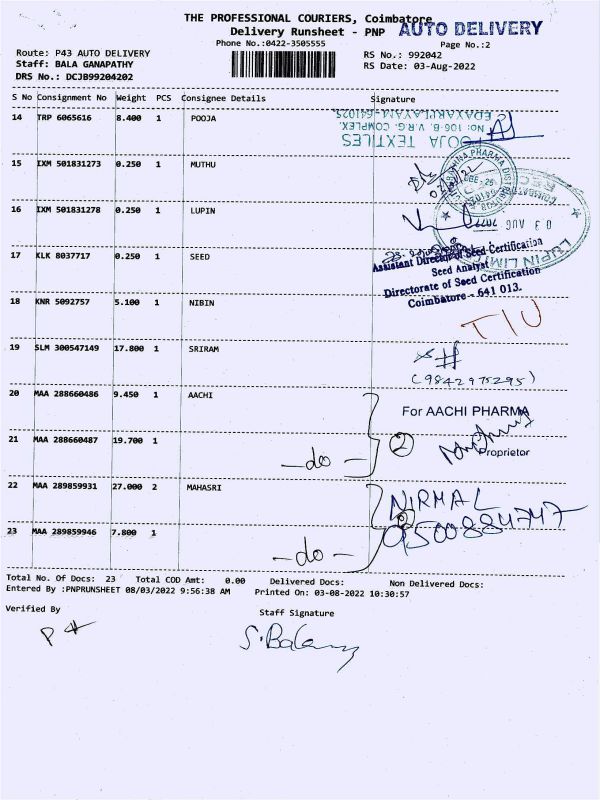 THE PROFESSIONAL COURIERS, Coimbatore
AUTO DELIVERY
Delivery Runsheet - PNP
Phone No.:0422-3505555
Page No.:2
Route: P43 AUTO DELIVERY
RS No.: 992042
Staff: BALA GANAPATHY
RS Date: 03-Aug-2022
DRS No.: DCJB99204202
S No Consignment No Weight PCS Consignee Details Signature
14 TRP 6065616 8.400 1 POOJA
POOJA TEXTILES
No: 106-B, V.R.G. COMPLEX,
EDAYARPALAYAM-641025
15 IXM 501831273 0.250 1 MUTHU
16 IXM 501831278 0.250 1 LUPIN
03 AUG 2022
LUPIN LIMITED
COIMBATORE
17 KLK 8037717 0.250 1 SEED
Assistant Director of Seed Certification
Seed Analyst
Directorate of Seed Certification
Coimbatore - 641 013.
18 KNR 5092757 5.100 1 NIBIN
19 SLM 300547149 17.800 1 SRIRAM
(9842975295)
20 MAA 288660486 9.450 1 AACHI
For AACHI PHARMA
2
Proprietor
21 MAA 288660487 19.700 1
-do-
22 MAA 289859931 27.000 2 MAHASRI
NIRMAL
9500884747
23 MAA 289859946 7.800 1
-do-
Total No. Of Docs: 23 Total COD Amt: 0.00 Delivered Docs: Non Delivered Docs:
Entered By :PNPRUNSHEET 08/03/2022 9:56:38 AM Printed On: 03-08-2022 10:30:57
Verified By
Staff Signature
S. Bala